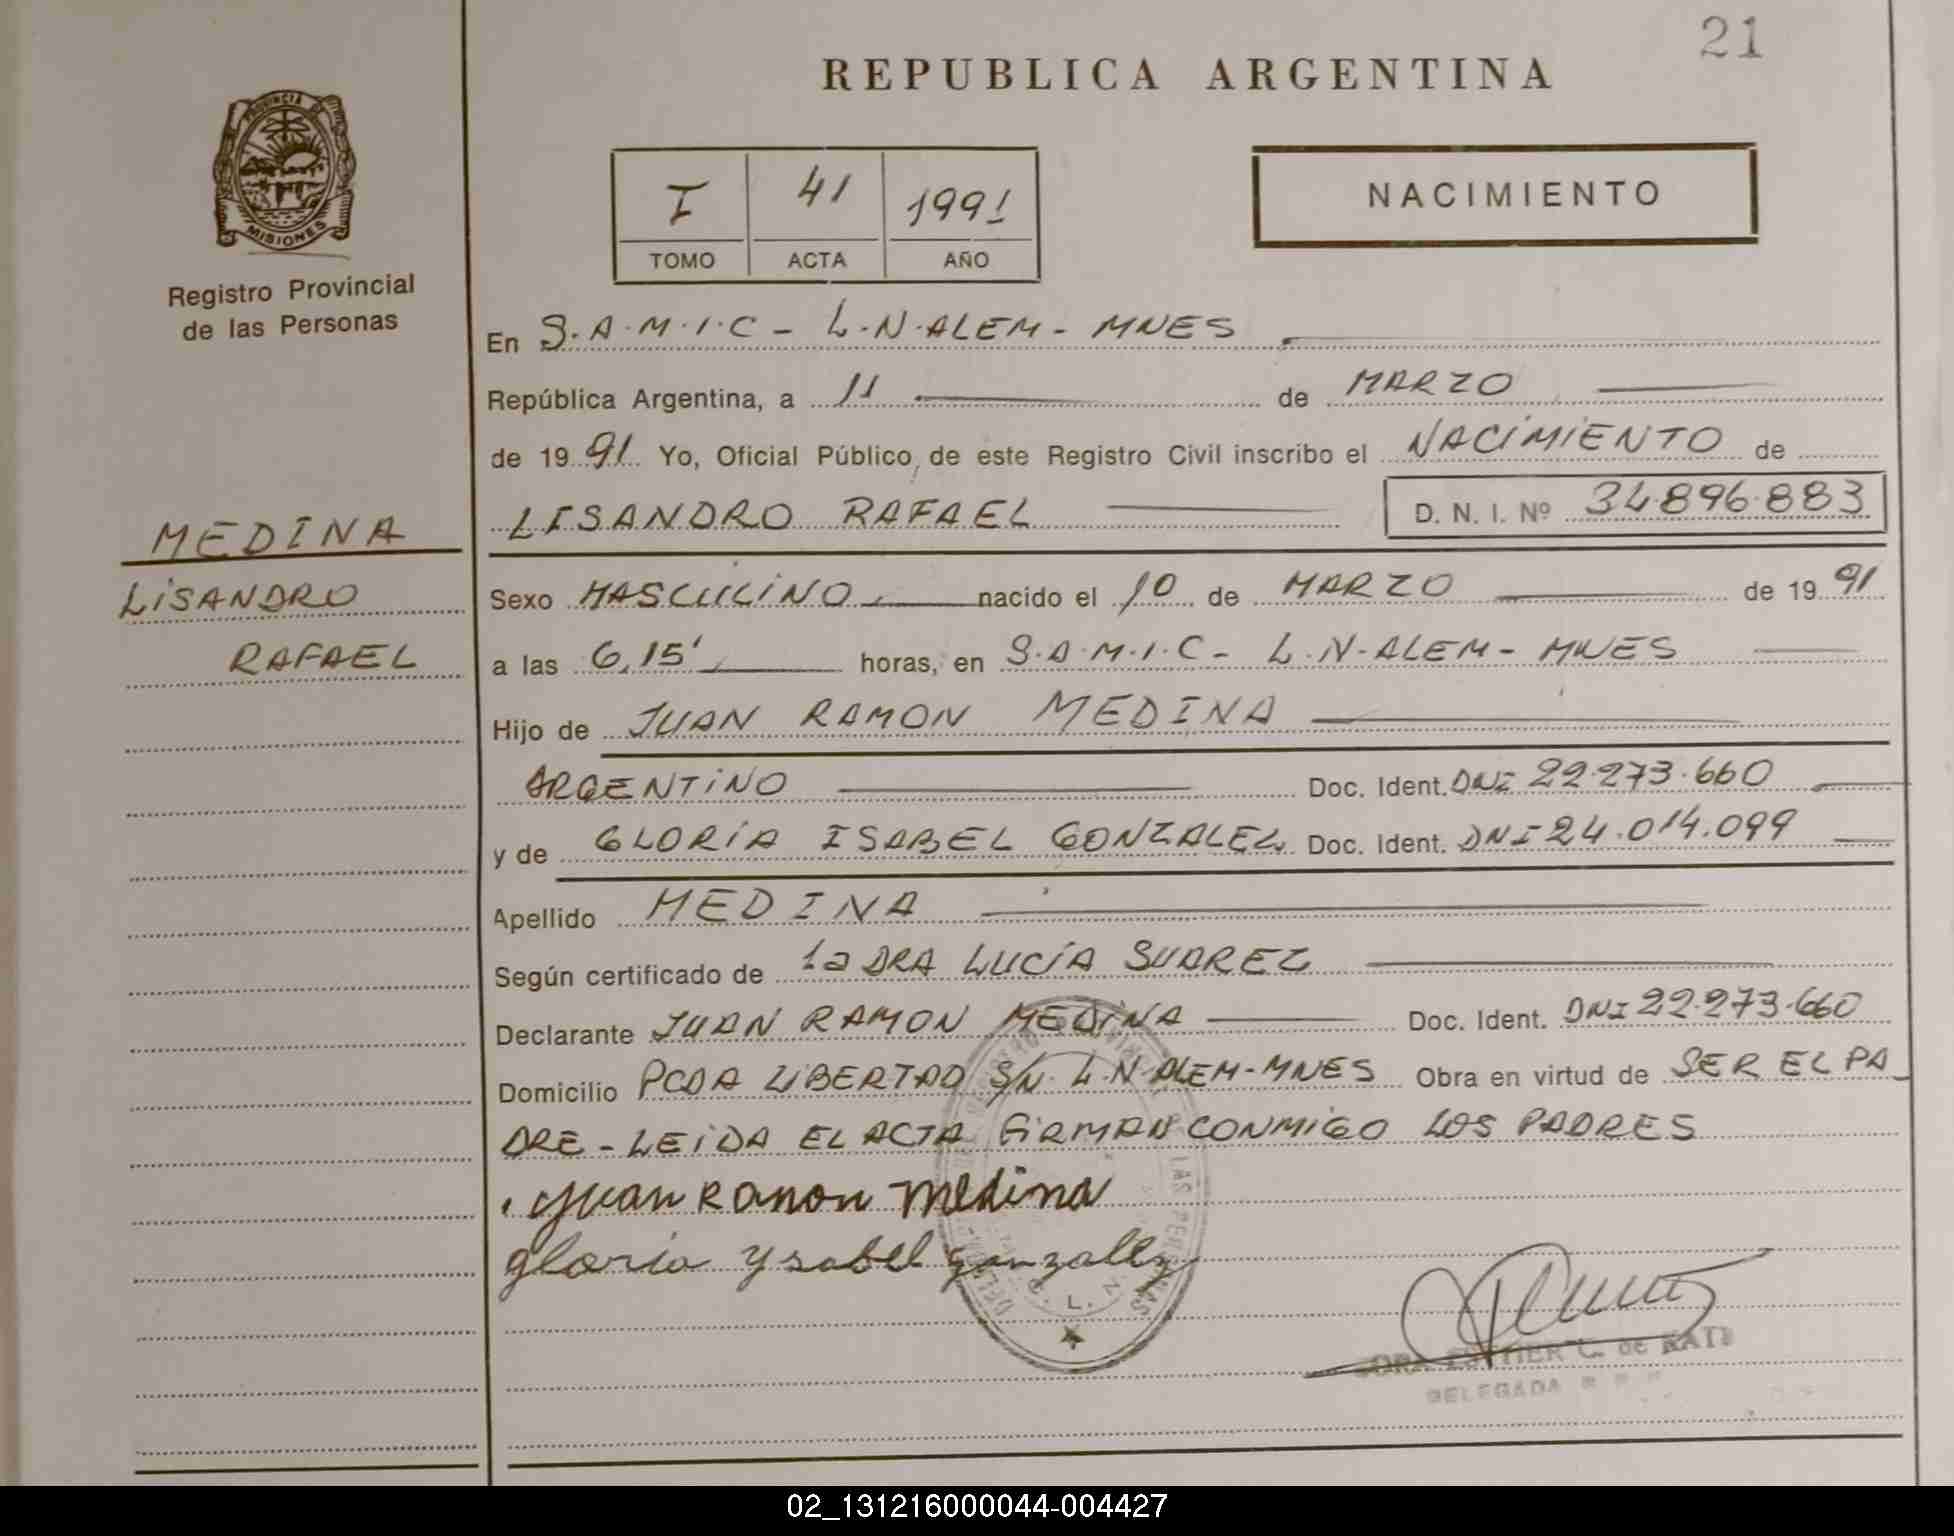 21
REPUBLICA ARGENTINA
PROVINCIA DE
MISIONES
Registro Provincial
de las Personas
I 41 1991
TOMO ACTA AÑO
NACIMIENTO
En S.A.M.I.C - L.N.ALEM - MNES
República Argentina, a 11 de MARZO
de 1991 Yo, Oficial Público de este Registro Civil inscribo el NACIMIENTO de
LISANDRO RAFAEL D. N. I. Nº 34.896.883
MEDINA
LISANDRO
RAFAEL
Sexo MASCULINO nacido el 10 de MARZO de 1991
a las 6,15' horas, en S.A.M.I.C - L.N-ALEM - MNES
Hijo de JUAN RAMON MEDINA
ARGENTINO Doc. Ident. DNI 22.273.660
y de GLORIA ISABEL GONZALEZ Doc. Ident. DNI 24.014.099
Apellido MEDINA
Según certificado de la DRA LUCIA SUAREZ
Declarante JUAN RAMON MEDINA Doc. Ident. DNI 22.273.660
Domicilio PCDA LIBERTAD S/N. L.N ALEM-MNES Obra en virtud de SER EL PA_
DRE - LEIDA EL ACTA FIRMAN CONMIGO LOS PADRES
Juan Ramon Medina
gloria Ysabel gonzalez
LAS PERSONAS
L. N.
ESTHER C. de
DELEGADA
02_131216000044-004427